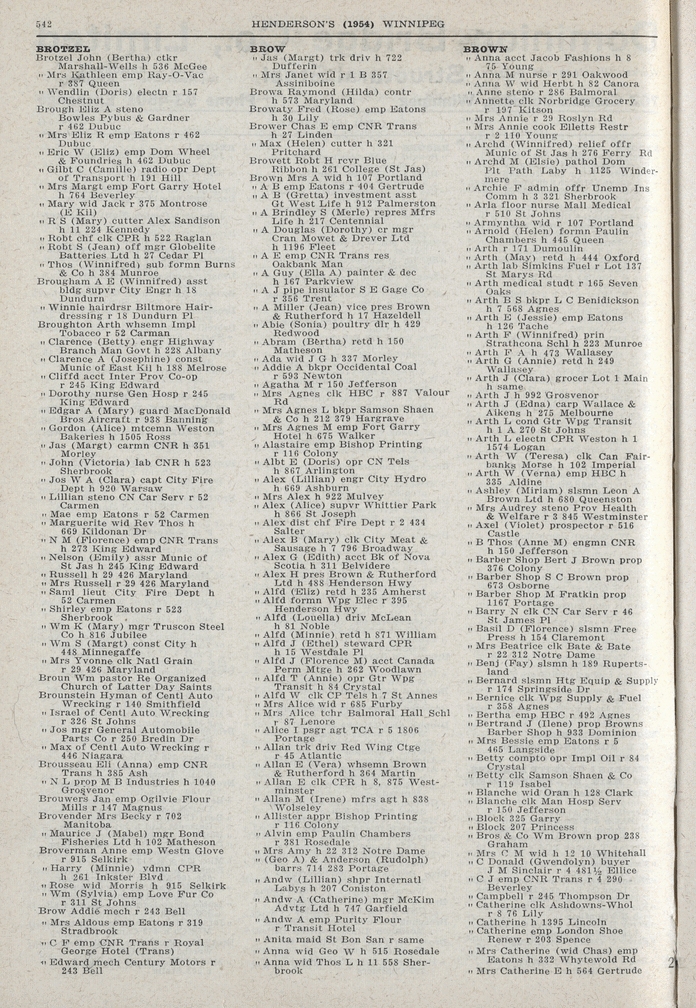 542
HENDERSON'S (1954) WINNIPEG
BROTZEL
Brotzel John (Bertha) ctkr
Marshall-Wells h 536 McGee
" Mrs Kathleen emp Ray-O-Vac
r 387 Queen
" Wendlin (Doris) electn r 157
Chestnut
Brough Eliz A steno
Bowles Pybus & Gardner
r 462 Dubuc
" Mrs Eliz R emp Eatons r 462
Dubuc
" Eric W (Eliz) emp Dom Wheel
& Foundries h 462 Dubuc
" Gilbt C (Camille) radio opr Dept
of Transport h 191 Hill
" Mrs Margt emp Fort Garry Hotel
h 764 Beverley
" Mary wid Jack r 375 Montrose
(E Kil)
" R S (Mary) cutter Alex Sandison
h 11 224 Kennedy
" Robt chf clk CPR h 522 Raglan
" Robt S (Jean) off mgr Globelite
Batteries Ltd h 27 Cedar Pl
" Thos (Winnifred) sub formn Burns
& Co h 384 Munroe
Brougham A E (Winnifred) asst
bldg supvr City Engr h 18
Dundurn
" Winnie hairdrsr Biltmore Hair-
dressing r 18 Dundurn Pl
Broughton Arth whsemn Impl
Tobacco r 52 Carman
" Clarence (Betty) engr Highway
Branch Man Govt h 228 Albany
" Clarence A (Josephine) const
Munic of East Kil h 188 Melrose
" Cliffd acct Inter Prov Co-op
r 245 King Edward
" Dorothy nurse Gen Hosp r 245
King Edward
" Edgar A (Mary) guard MacDonald
Bros Aircraft r 938 Banning
" Gordon (Alice) mtcemn Weston
Bakeries h 1505 Ross
" Jas (Margt) carmn CNR h 351
Morley
" John (Victoria) lab CNR h 523
Sherbrook
" Jos W A (Clara) capt City Fire
Dept h 920 Warsaw
" Lillian steno CN Car Serv r 52
Carmen
" Mae emp Eatons r 52 Carmen
" Marguerite wid Rev Thos h
669 Kildonan Dr
" N M (Florence) emp CNR Trans
h 273 King Edward
" Nelson (Emily) assr Munic of
St Jas h 245 King Edward
" Russell h 29 426 Maryland
" Mrs Russell r 29 426 Maryland
" Saml lieut City Fire Dept h
52 Carmen
" Shirley emp Eatons r 523
Sherbrook
" Wm K (Mary) mgr Truscon Steel
Co h 816 Jubilee
" Wm S (Margt) const City h
448 Minnegaffe
" Mrs Yvonne clk Natl Grain
r 29 426 Maryland
Broun Wm pastor Re Organized
Church of Latter Day Saints
Brounstein Hyman of Centl Auto
Wrecking r 140 Smithfield
" Israel of Centl Auto Wrecking
r 326 St Johns
" Jos mgr General Automobile
Parts Co r 250 Bredin Dr
" Max of Centl Auto Wrecking r
446 Niagara
Brousseau Eli (Anna) emp CNR
Trans h 385 Ash
" N L prop M B Industries h 1040
Grosvenor
Brouwers Jan emp Ogilvie Flour
Mills r 147 Magnus
Brovender Mrs Becky r 702
Manitoba
" Maurice J (Mabel) mgr Bond
Fisheries Ltd h 102 Matheson
Broverman Anne emp Westn Glove
r 915 Selkirk
" Harry (Minnie) ydmn CPR
h 261 Inkster Blvd
" Rose wid Morris h 915 Selkirk
" Wm (Sylvia) emp Love Fur Co
r 311 St Johns
Brow Addie mech r 243 Bell
" Mrs Aldous emp Eatons r 319
Stradbrook
" C F emp CNR Trans r Royal
George Hotel (Trans)
" Edward mech Century Motors r
243 Bell
BROW
" Jas (Margt) trk driv h 722
Dufferin
" Mrs Janet wid r 1 B 357
Assiniboine
Browa Raymond (Hilda) contr
h 573 Maryland
Browaty Fred (Rose) emp Eatons
h 30 Lily
Brower Chas E emp CNR Trans
h 27 Linden
" Max (Helen) cutter h 321
Pritchard
Browett Robt H rcvr Blue
Ribbon h 261 College (St Jas)
Brown Mrs A wid h 107 Portland
" A B emp Eatons r 404 Gertrude
" A B (Gretta) investment asst
Gt West Life h 912 Palmerston
" A Brindley S (Merle) repres Mfrs
Life h 217 Centennial
" A Douglas (Dorothy) cr mgr
Cran Mowet & Drever Ltd
h 1196 Fleet
" A E emp CNR Trans res
Oakbank Man
" A Guy (Ella A) painter & dec
h 167 Parkview
" A J pipe insulator S E Gage Co
r 356 Trent
" A Miller (Jean) vice pres Brown
& Rutherford h 17 Hazeldell
" Able (Sonia) poultry dlr h 429
Redwood
" Abram (Bertha) retd h 150
Matheson
" Ada wid J G h 337 Morley
" Addie A bkpr Occidental Coal
r 593 Newton
" Agatha M r 150 Jefferson
" Mrs Agnes clk HBC r 887 Valour
Rd
" Mrs Agnes L bkpr Samson Shaen
& Co h 212 379 Hargrave
" Mrs Agnes M emp Fort Garry
Hotel h 675 Walker
" Alastaire emp Bishop Printing
r 116 Colony
" Albt E (Doris) opr CN Tels
h 867 Arlington
" Alex (Lillian) engr City Hydro
h 669 Ashburn
" Mrs Alex h 922 Mulvey
" Alex (Alice) supvr Whittier Park
h 866 St Joseph
" Alex dist chf Fire Dept r 2 434
Salter
" Alex B (Mary) clk City Meat &
Sausage h 7 796 Broadway
" Alex G (Edith) acct Bk of Nova
Scotia h 311 Belvidere
" Alex H pres Brown & Rutherford
Ltd h 488 Henderson Hwy
" Alfd (Eliz) retd h 235 Amherst
" Alfd formn Wpg Elec r 395
Henderson Hwy
" Alfd (Louella) driv McLean
h 81 Noble
" Alfd (Minnie) retd h 871 William
" Alfd J (Ethel) steward CPR
h 15 Westdale Pl
" Alfd J (Florence M) acct Canada
Perm Mtge h 262 Woodlawn
" Alfd T (Annie) opr Gtr Wpg
Transit h 84 Crystal
" Alfd W clk CP Tels h 7 St Annes
" Mrs Alice wid r 685 Furby
" Mrs Alice tchr Balmoral Hall Schl
r 87 Lenore
" Alice I psgr agt TCA r 5 1806
Portage
" Allan trk driv Red Wing Ctge
r 45 Atlantic
" Allan E (Vera) whsemn Brown
& Rutherford h 364 Martin
" Allan E clk CPR h 8, 875 West-
minster
" Allan M (Irene) mfrs agt h 838
Wolseley
" Allister appr Bishop Printing
r 116 Colony
" Alvin emp Paulin Chambers
r 381 Rosedale
" Mrs Amy h 22 312 Notre Dame
" (Geo A) & Anderson (Rudolph)
barrs 714 283 Portage
" Andw (Lillian) shpr Internatl
Labys h 207 Coniston
" Andw A (Catherine) mgr McKim
Advtg Ltd h 747 Garfield
" Andw A emp Purity Flour
r Transit Hotel
" Anita maid St Bon San r same
" Anna wid Geo W h 515 Rosedale
" Anna wid Thos L h 11 558 Sher-
brook
BROWN
" Anna acct Jacob Fashions h 8
75 Young
" Anna M nurse r 291 Oakwood
" Anna W wid Herbt h 82 Canora
" Anne steno r 286 Balmoral
" Annette clk Norbridge Grocery
r 197 Kitson
" Mrs Annie r 29 Roslyn Rd
" Mrs Annie cook Eilletts Restr
r 2 110 Young
" Archd (Winnifred) relief offr
Munic of St Jas h 276 Ferry Rd
" Archd M (Elsie) pathol Dom
Plt Path Laby h 1125 Winder-
mere
" Archie F admin offr Unemp Ins
Comm h 3 321 Sherbrook
" Arla floor nurse Mall Medical
r 510 St Johns
" Armyntha wid r 107 Portland
" Arnold (Helen) formn Paulin
Chambers h 445 Queen
" Arth r 171 Dumoulin
" Arth (May) retd h 444 Oxford
" Arth lab Simkins Fuel r Lot 137
St Marys Rd
" Arth medical studt r 165 Seven
Oaks
" Arth B S bkpr L C Benidickson
h 7 568 Agnes
" Arth E (Jessie) emp Eatons
h 126 Tache
" Arth F (Winnifred) prin
Strathcona Schl h 223 Munroe
" Arth F A h 473 Wallasey
" Arth G (Annie) retd h 249
Wallasey
" Arth J (Clara) grocer Lot 1 Main
h same
" Arth J h 992 Grosvenor
" Arth J (Edna) carp Wallace &
Aikens h 275 Melbourne
" Arth L cond Gtr Wpg Transit
h 1 A 270 St Johns
" Arth L electn CPR Weston h 1
1574 Logan
" Arth W (Teresa) clk Can Fair-
banks Morse h 102 Imperial
" Arth W (Verna) emp HBC h
335 Aldine
" Ashley (Miriam) slsmn Leon A
Brown Ltd h 680 Queenston
" Mrs Audrey steno Prov Health
& Welfare r 3 845 Westminster
" Axel (Violet) prospector r 516
Castle
" B Thos (Anne M) engmn CNR
h 150 Jefferson
" Barber Shop Bert J Brown prop
376 Colony
" Barber Shop S C Brown prop
673 Osborne
" Barber Shop M Fratkin prop
1167 Portage
" Barry N clk CN Car Serv r 46
St James Pl
" Basil D (Florence) slsmn Free
Press h 154 Claremont
" Mrs Beatrice clk Bate & Bate
r 22 312 Notre Dame
" Benj (Fay) slsmn h 189 Ruperts-
land
" Bernard slsmn Htg Equip & Supply
r 174 Springside Dr
" Bernice clk Wpg Supply & Fuel
r 358 Agnes
" Bertha emp HBC r 492 Agnes
" Bertrand J (Ilene) prop Browns
Barber Shop h 933 Dominion
" Mrs Bessie emp Eatons r 5
465 Langside
" Betty compto opr Impl Oil r 84
Crystal
" Betty clk Samson Shaen & Co
r 119 Isabel
" Blanche wid Oran h 128 Clark
" Blanche clk Man Hosp Serv
r 150 Jefferson
" Block 325 Garry
" Block 207 Princess
" Bros & Co Wm Brown prop 238
Graham
" Mrs C M wid h 12 10 Whitehall
" C Donald (Gwendolyn) buyer
J M Sinclair r 4 481½ Ellice
" C J emp CNR Trans r 4 290
Beverley
" Campbell r 245 Thompson Dr
" Catherine clk Ashdowns-Whol
r 8 76 Lily
" Catherine h 1395 Lincoln
" Catherine emp London Shoe
Renew r 203 Spence
" Mrs Catherine (wid Chas) emp
Eatons h 332 Whytewold Rd
" Mrs Catherine E h 564 Gertrude